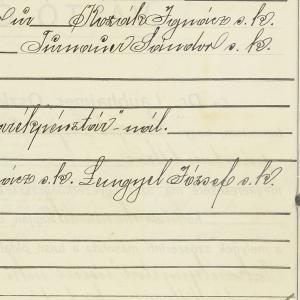 úr Kozák Ignácz s.k.
Turnauer Sándor s.k.
arékpénztár"-nál.
ácz s.k. Lengyel József s.k.